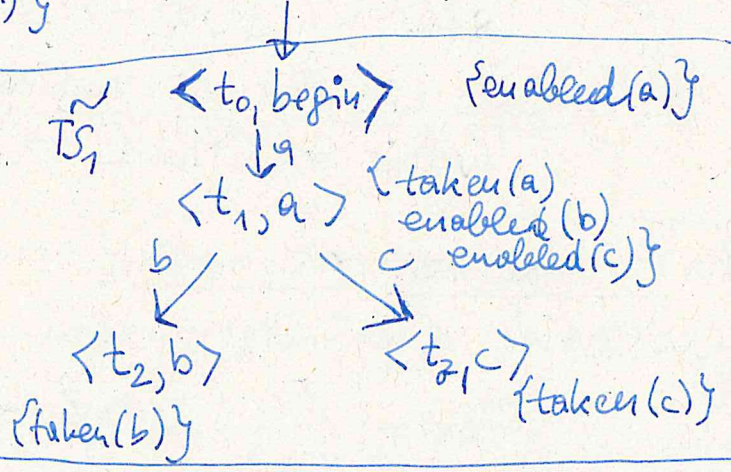 ) }
T̃S₁ <t₀, begin> {enabled(a)}
a
<t₁, a> {taken(a)
enabled(b)
b c enabled(c)}
<t₂, b> <t₃, c>
{taken(b)} {taken(c)}